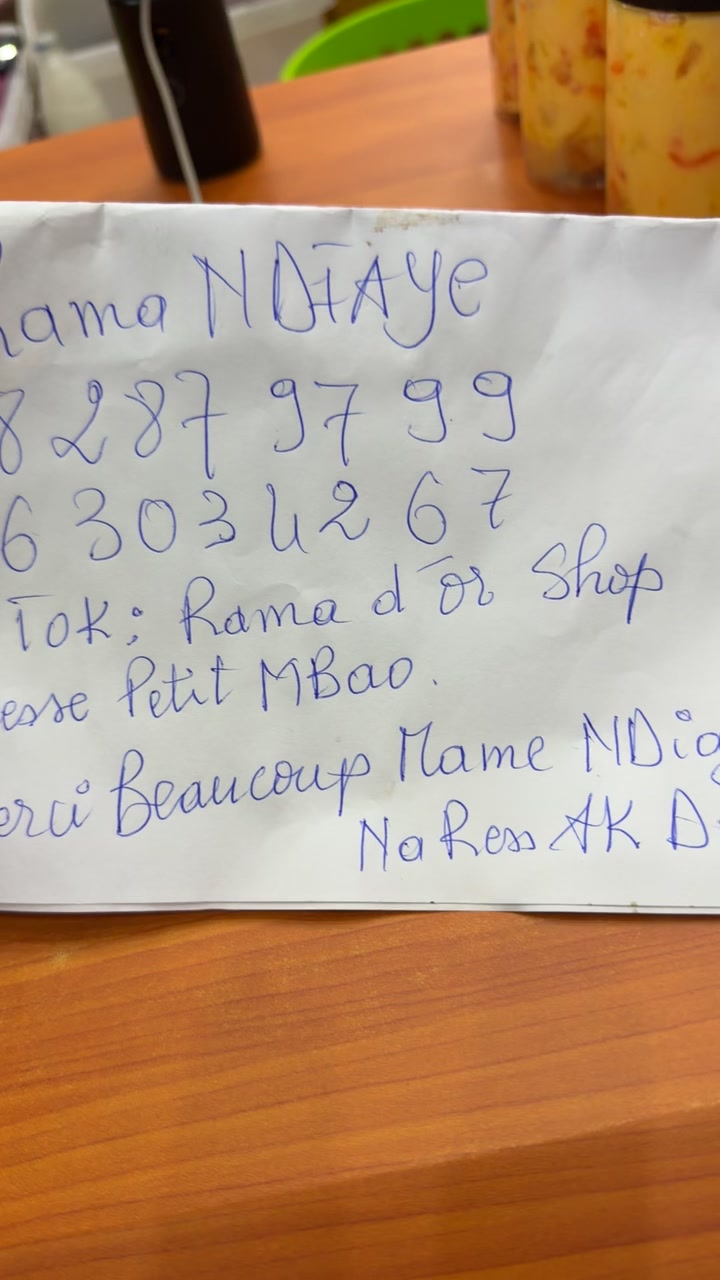 Rama NDIAYE
8 287 97 99
6 303 42 67
Tok: Rama d'or Shop
esse Petit MBao.
erci Beaucoup Mame NDig
Na Ress AK D